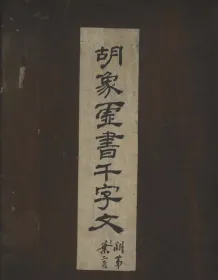 胡象灵書千字文